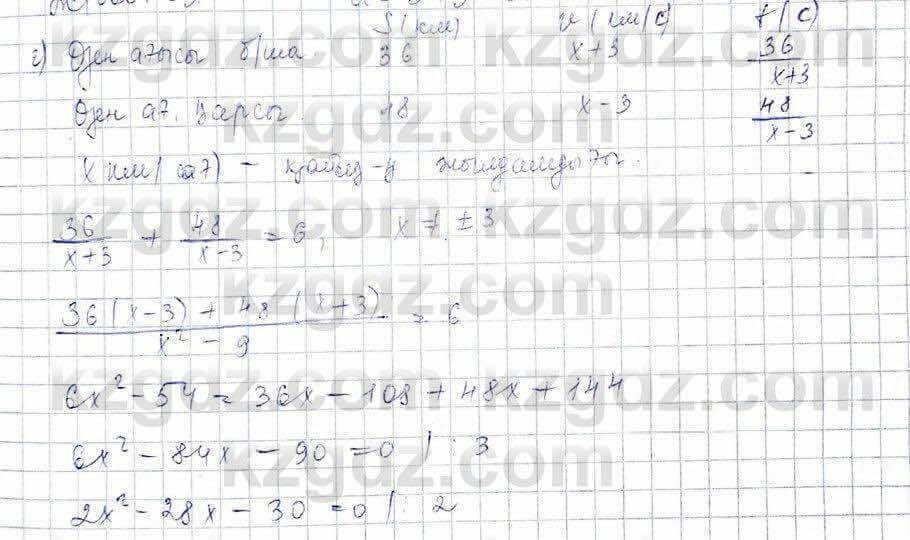 S (км) v (км/с) t (с)
г) Өзен ағысы б/ша 36 x+3 36/(x+3)
Өзен ағ. қарсы. 48 x-3 48/(x-3)
x (км/сағ) - қайық-ң жылдамдығы.
36/(x+3) + 48/(x-3) = 6, x ≠ ±3
(36(x-3) + 48(x+3))/(x²-9) = 6
6x²-54 = 36x-108+48x+144
6x²-84x-90=0 | : 3
2x²-28x-30=0 | : 2
kzgdz.com